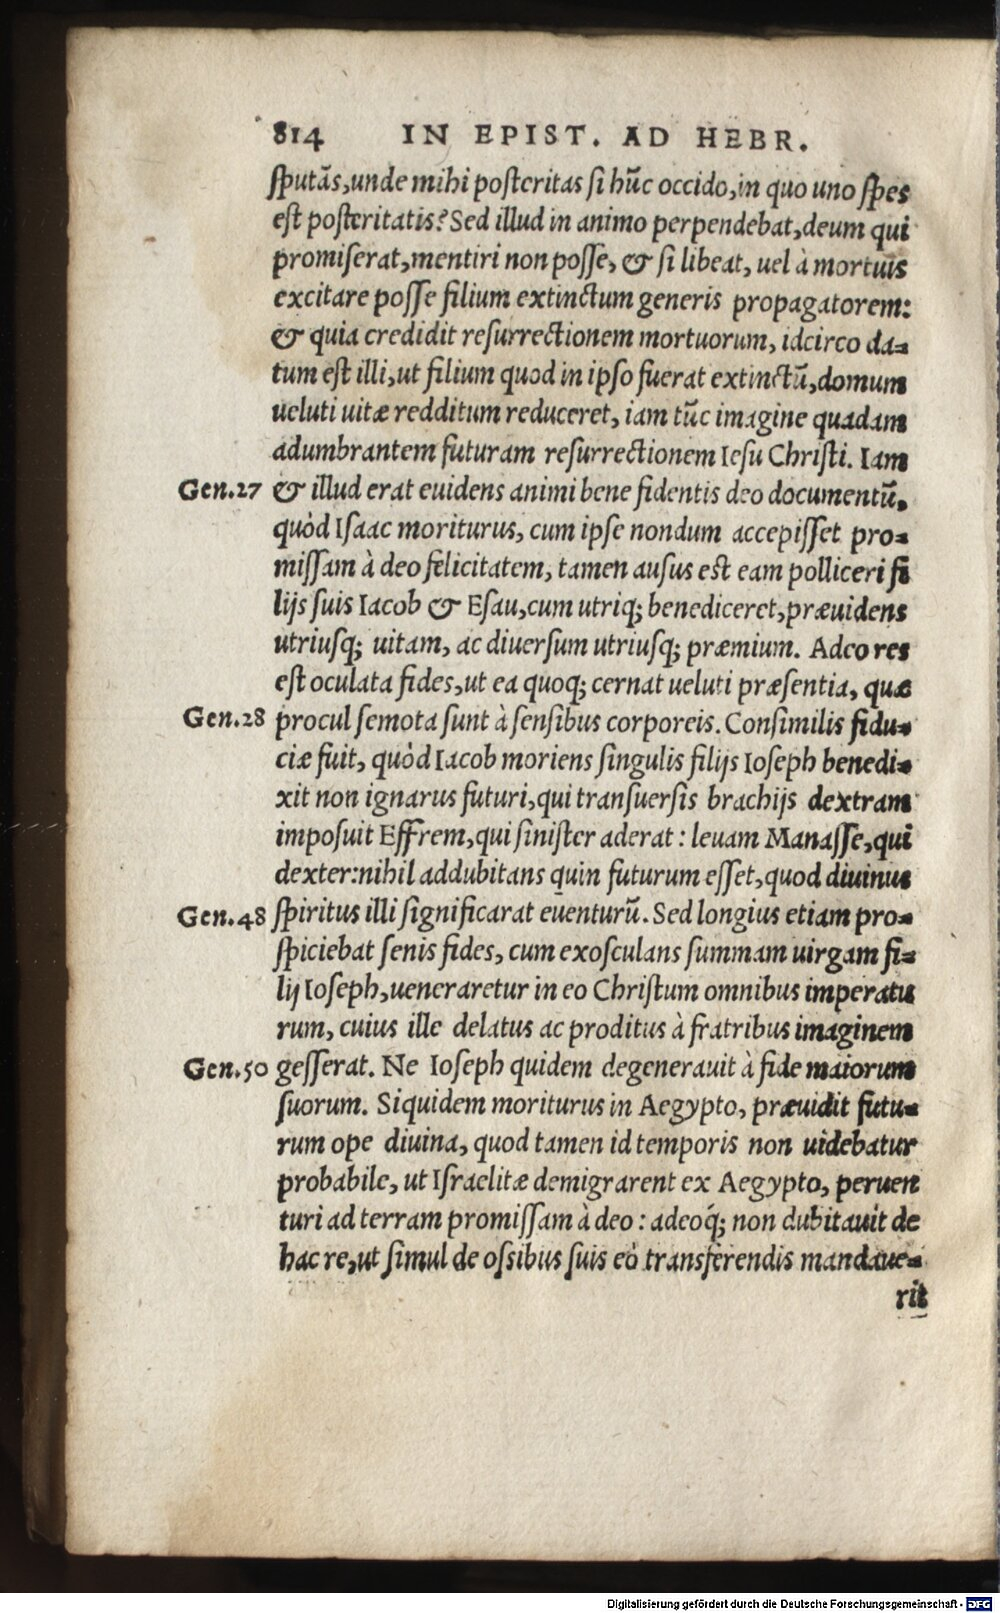 814 IN EPIST. AD HEBR.
sputãs,unde mihi posteritas si hũc occido,in quo uno spes
est posteritatis? Sed illud in animo perpendebat,deum qui
promiserat,mentiri non posse, & si libeat, uel à mortuis
excitare posse filium extinctum generis propagatorem:
& quia credidit resurrectionem mortuorum, idcirco da=
tum est illi,ut filium quod in ipso fuerat extinctũ,domum
ueluti uitæ redditum reduceret, iam tũc imagine quadam
adumbrantem futuram resurrectionem Iesu Christi. Iam
Gen.27 & illud erat euidens animi bene fidentis deo documentũ,
quòd Isaac moriturus, cum ipse nondum accepisset pro=
missam à deo felicitatem, tamen ausus est eam polliceri fi
lijs suis Iacob & Esau,cum utriq; benediceret,præuidens
utriusq; uitam, ac diuersum utriusq; præmium. Adeo res
est oculata fides,ut ea quoq; cernat ueluti præsentia, quæ
Gen.28 procul semota sunt à sensibus corporeis. Consimilis fidu=
ciæ fuit, quòd Iacob moriens singulis filijs Ioseph benedi=
xit non ignarus futuri,qui transuersis brachijs dextram
imposuit Effrem,qui sinister aderat : leuam Manasse,qui
dexter:nihil addubitans quin futurum esset,quod diuinus
Gen.48 spiritus illi significarat euenturũ. Sed longius etiam pro=
spiciebat senis fides, cum exosculans summam uirgam fi=
lij Ioseph,ueneraretur in eo Christum omnibus imperatu
rum, cuius ille delatus ac proditus à fratribus imaginem
Gen.50 gesserat. Ne Ioseph quidem degenerauit à fide maiorum
suorum. Siquidem moriturus in Aegypto, præuidit futu=
rum ope diuina, quod tamen id temporis non uidebatur
probabile, ut Israelitæ demigrarent ex Aegypto, peruen
turi ad terram promissam à deo : adeoq́; non dubitauit de
hac re,ut simul de ossibus suis eò transferendis mandaue=
rit
Digitalisierung gefördert durch die Deutsche Forschungsgemeinschaft - DFG